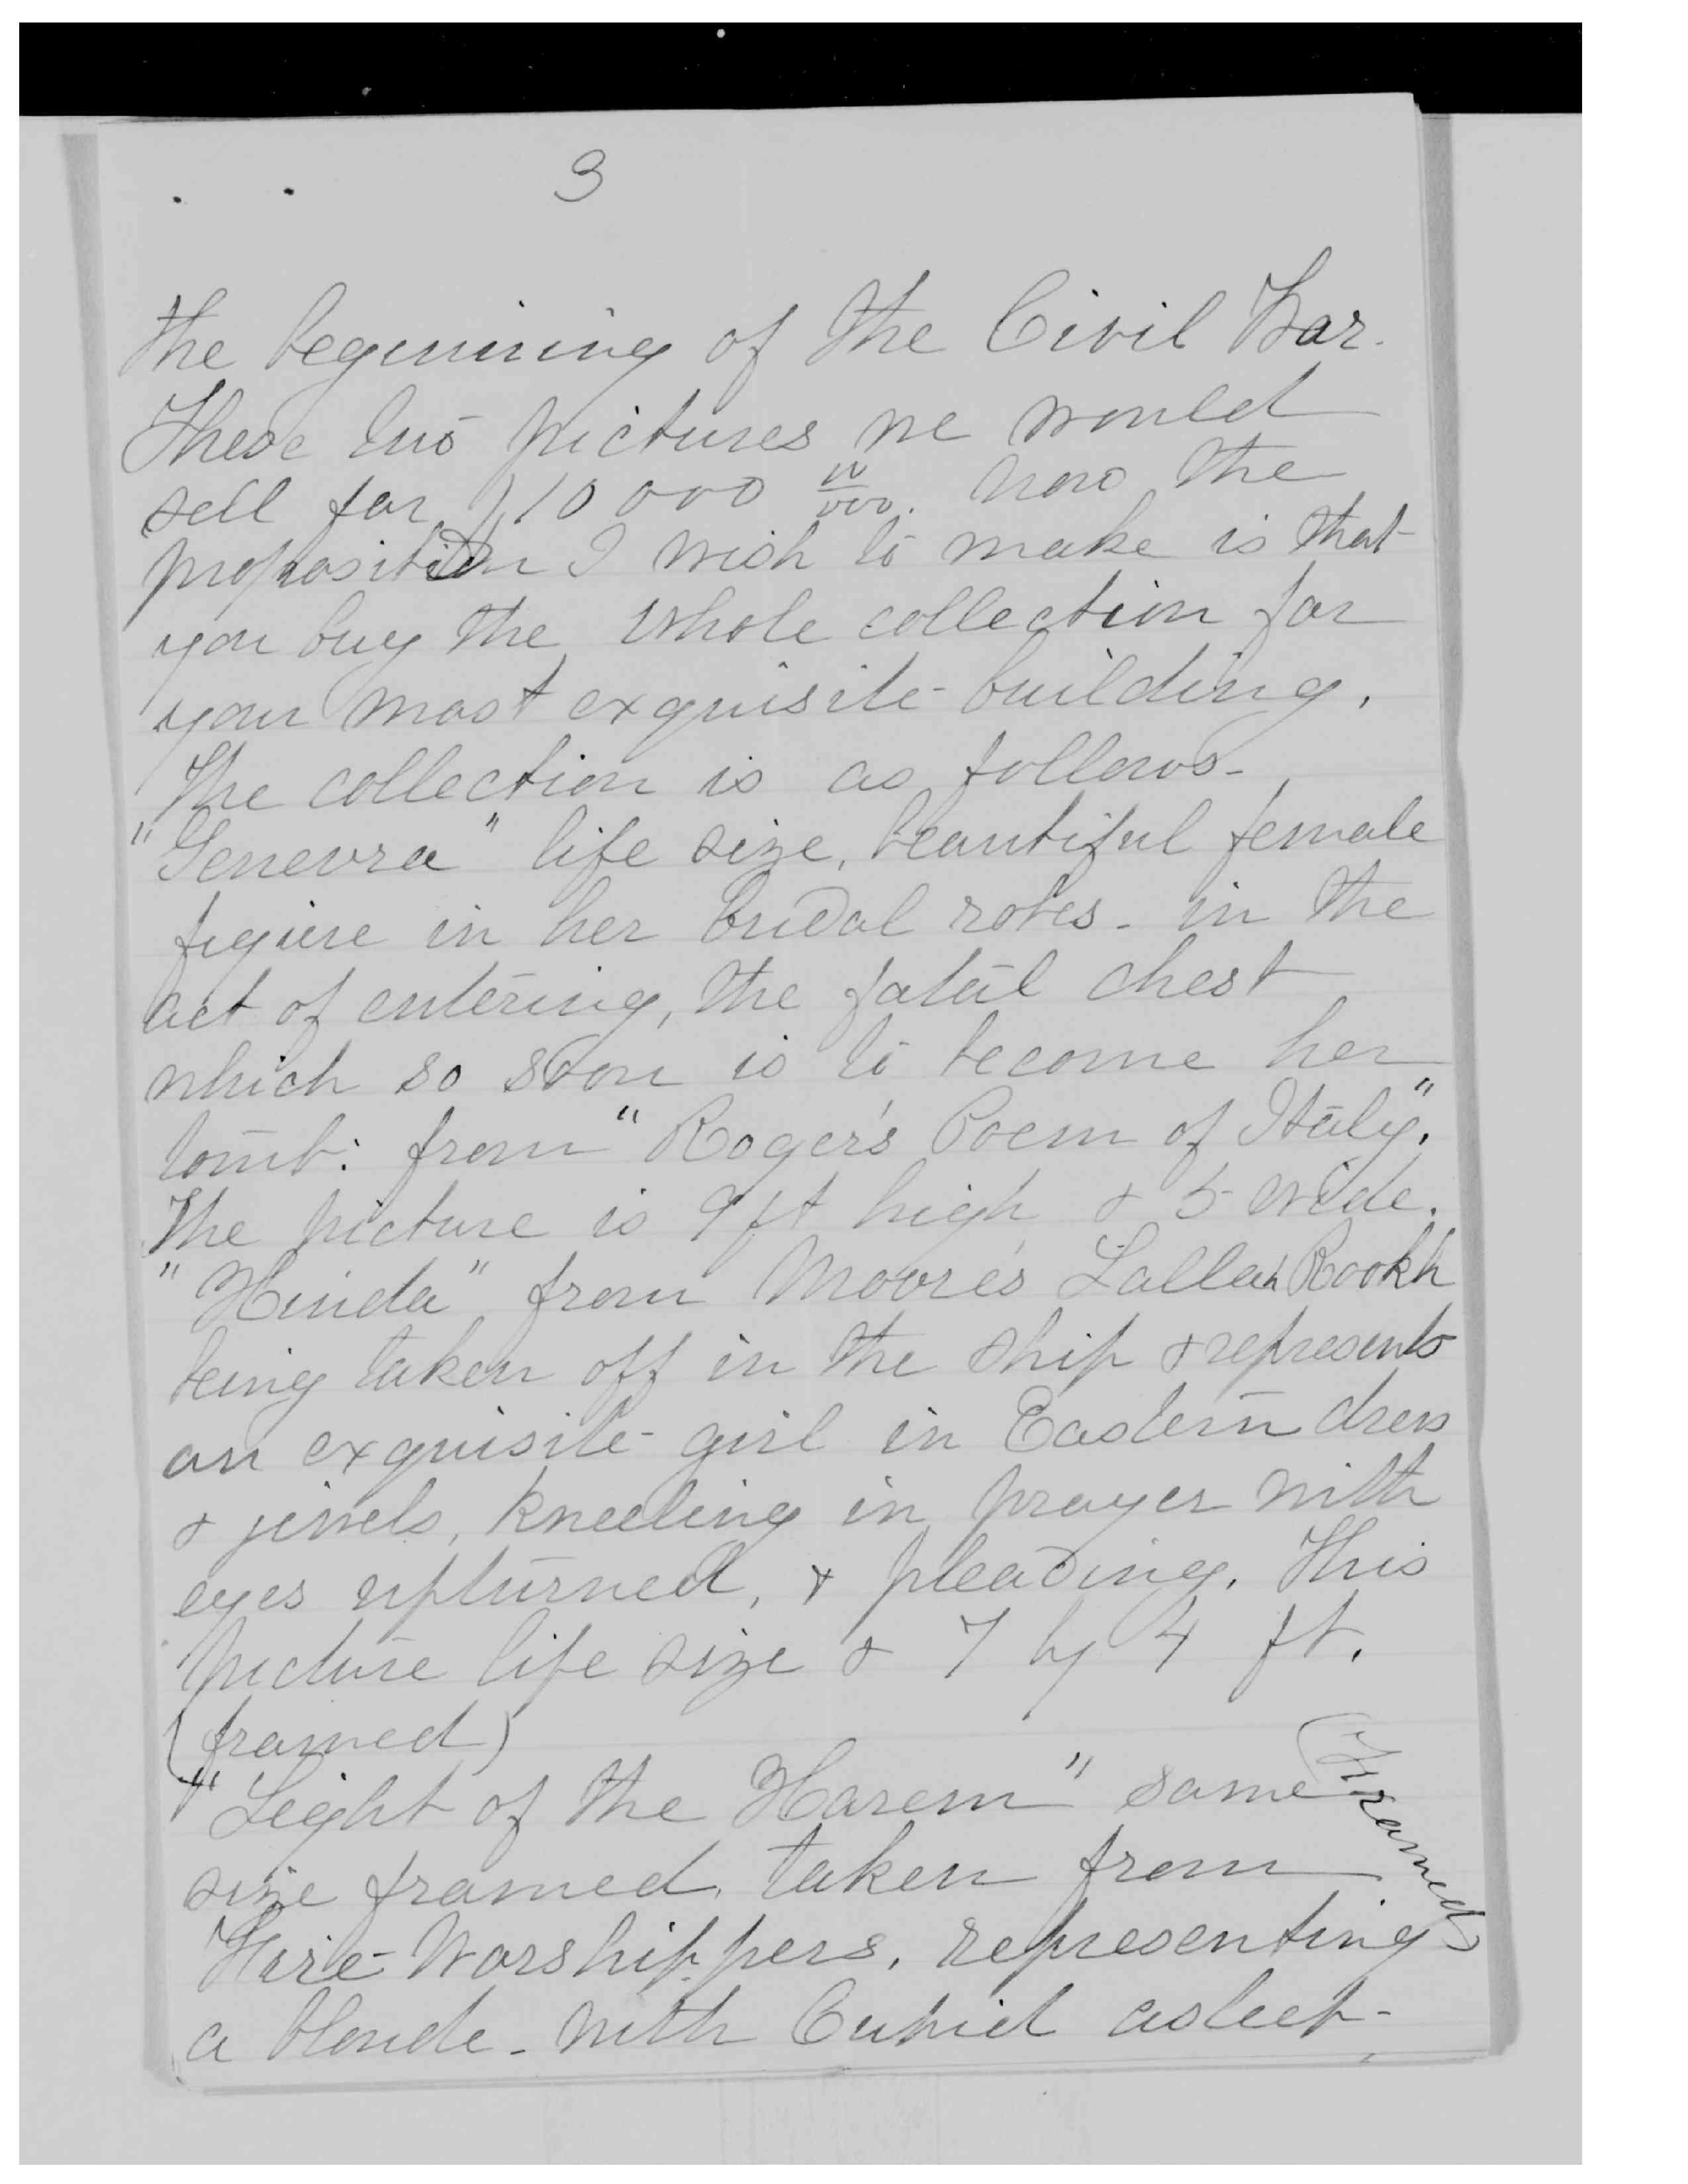 3
the beginning of the Civil War.
These two pictures we would
sell for $10 000 00/000. now the
proposition I wish to make is that
you buy the whole collection for
your most exquisite building.
The collection is as follows-
"Genevra" life size, beautiful female
figure in her bridal robes - in the
act of entering, the fatal chest
which so soon is to become her
tomb: from "Roger's Poem of Italy".
The picture is 9 ft high & 5 wide.
"Hinda" from Moore's Lallah Rookh
being taken off in the ship & represents
an exquisite girl in Eastern dress
& jewels, kneeling in prayer with
eyes upturned, & pleading. This
picture life size & 7 by 4 ft.
(framed)
"Light of the Harem" same (Framed)
size framed, taken from
Fire-Worshippers, representing
a blonde - with Cupid asleep-